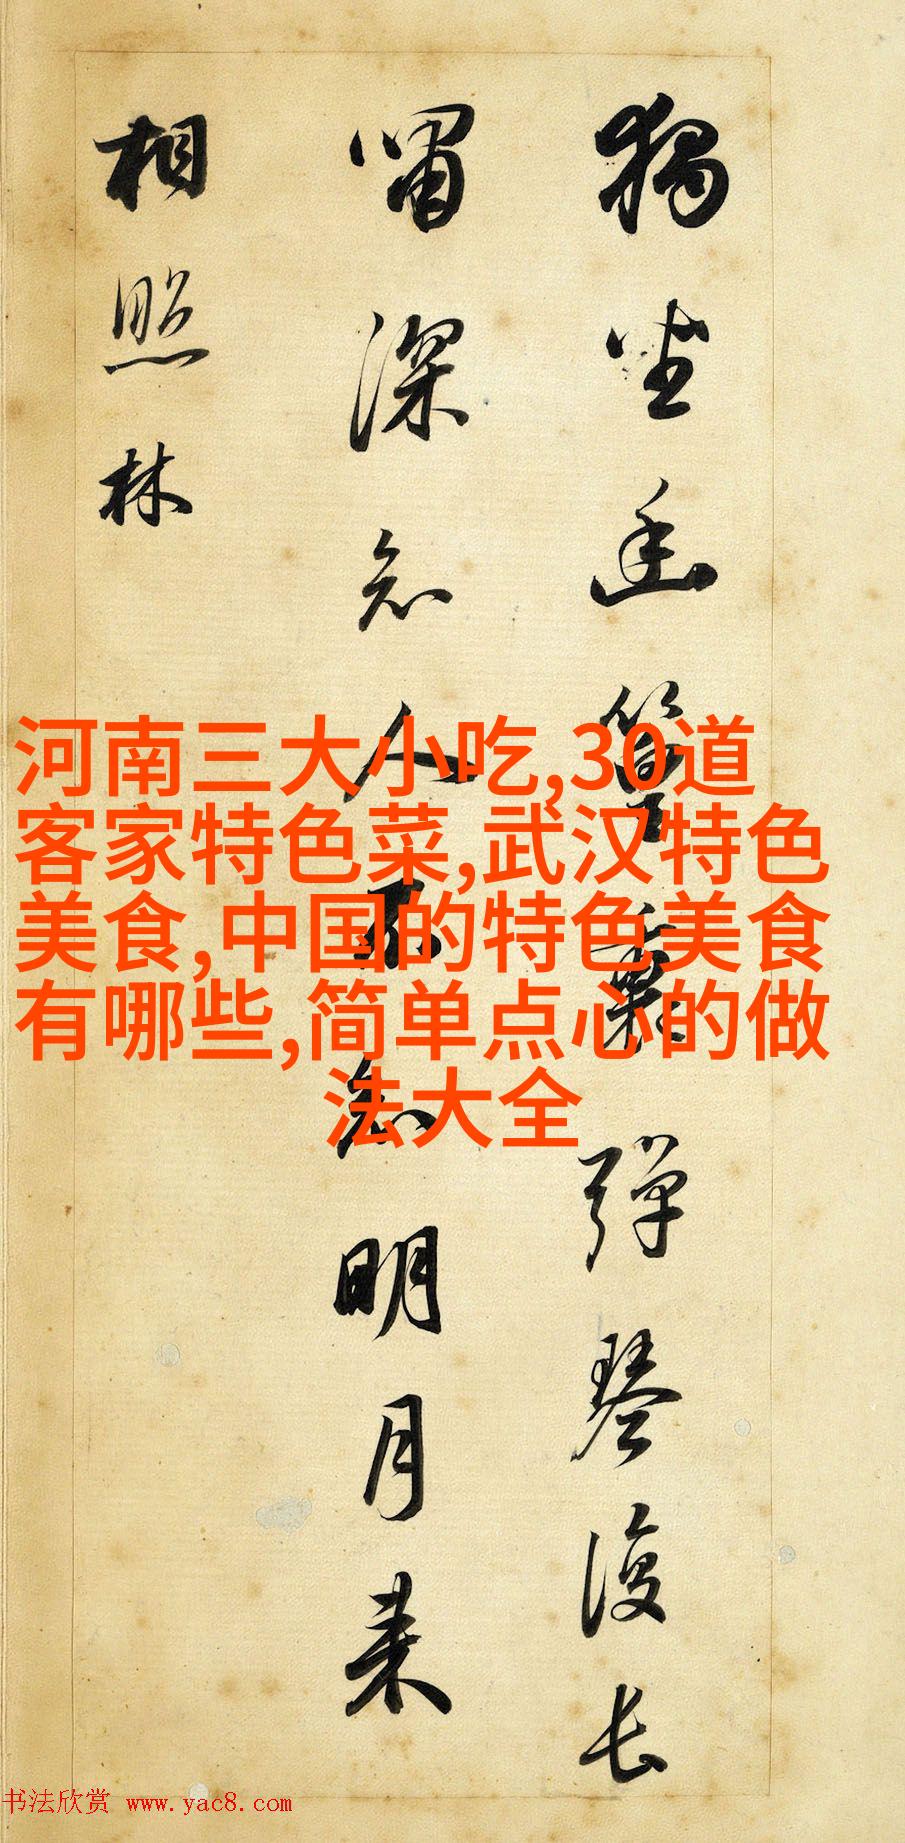 獨坐幽篁裏彈琴復長
嘯深知人不知明月来
相照林
河南三大小吃,30道
客家特色菜,武汉特色
美食,中国的特色美食
有哪些,简单点心的做
法大全
书法欣赏 www.yac8.com